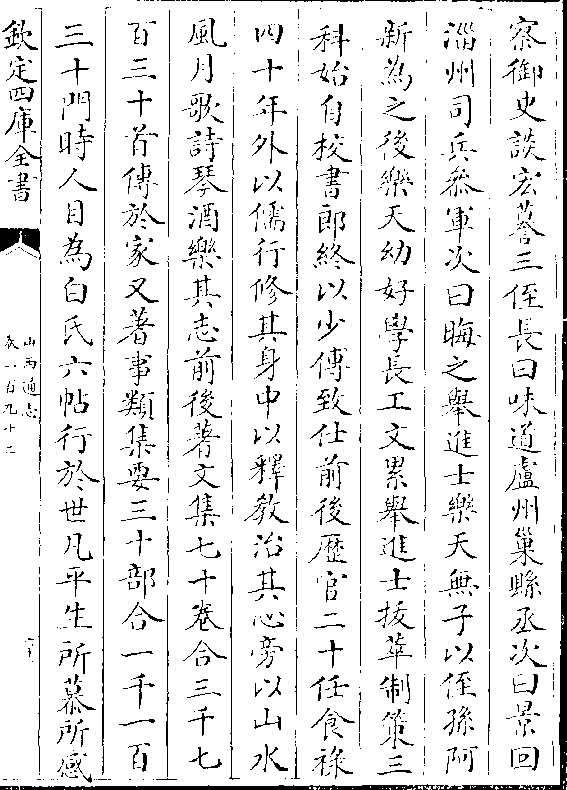 察御史談宏謩三侄長曰味道廬州巢縣丞次曰景回
淄州司兵叅軍次曰晦之舉進士樂天無子以侄孫阿
新為之後樂天幼好學長工文累舉進士拔萃制策三
科始自校書郎終以少傅致仕前後歴官二十任食祿
四十年外以儒行修其身中以釋教治其心旁以山水
風月歌詩琴酒樂其志前後著文集七十卷合三千七
百三十首傳於家又著事類集要三十部合一千一百
三十門時人目為白氏六帖行於世凡平生所慕所感
欽定四庫全書
山西通志
卷一百九十二